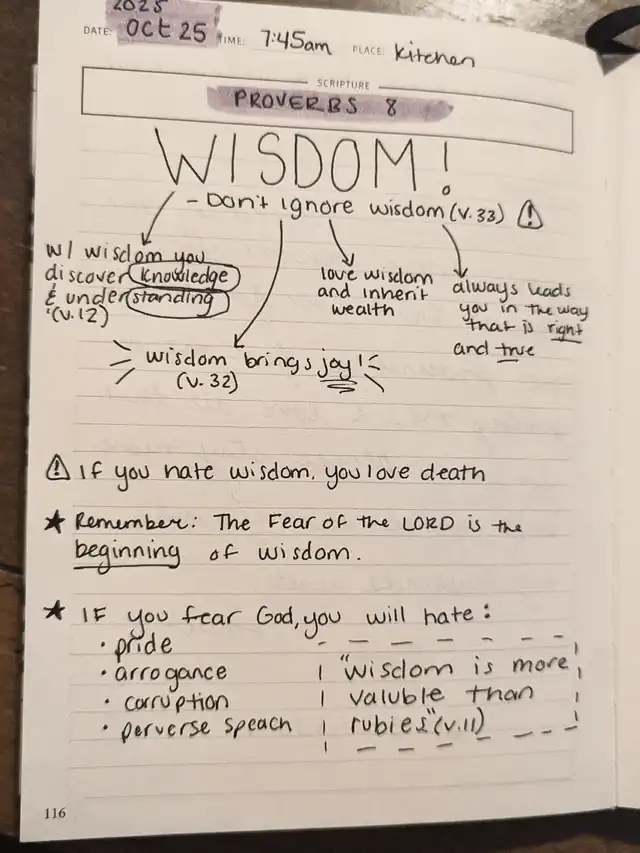 2025
DATE: OCT 25 TIME: 7:45am PLACE: Kitchen
SCRIPTURE
PROVERBS 8
WISDOM!
- Don't ignore wisdom (v.33)
w/ wisdom you
discover knowledge
& understanding
(v.12)
love wisdom
and inherit
wealth
always leads
you in the way
that is right
and true
wisdom brings joy!
(v. 32)
If you hate wisdom, you love death
Remember: The Fear of the LORD is the
beginning of wisdom.
IF you fear God, you will hate:
• pride
• arrogance
• corruption
• perverse speach
"wisdom is more
valuble than
rubies" (v.11)
116